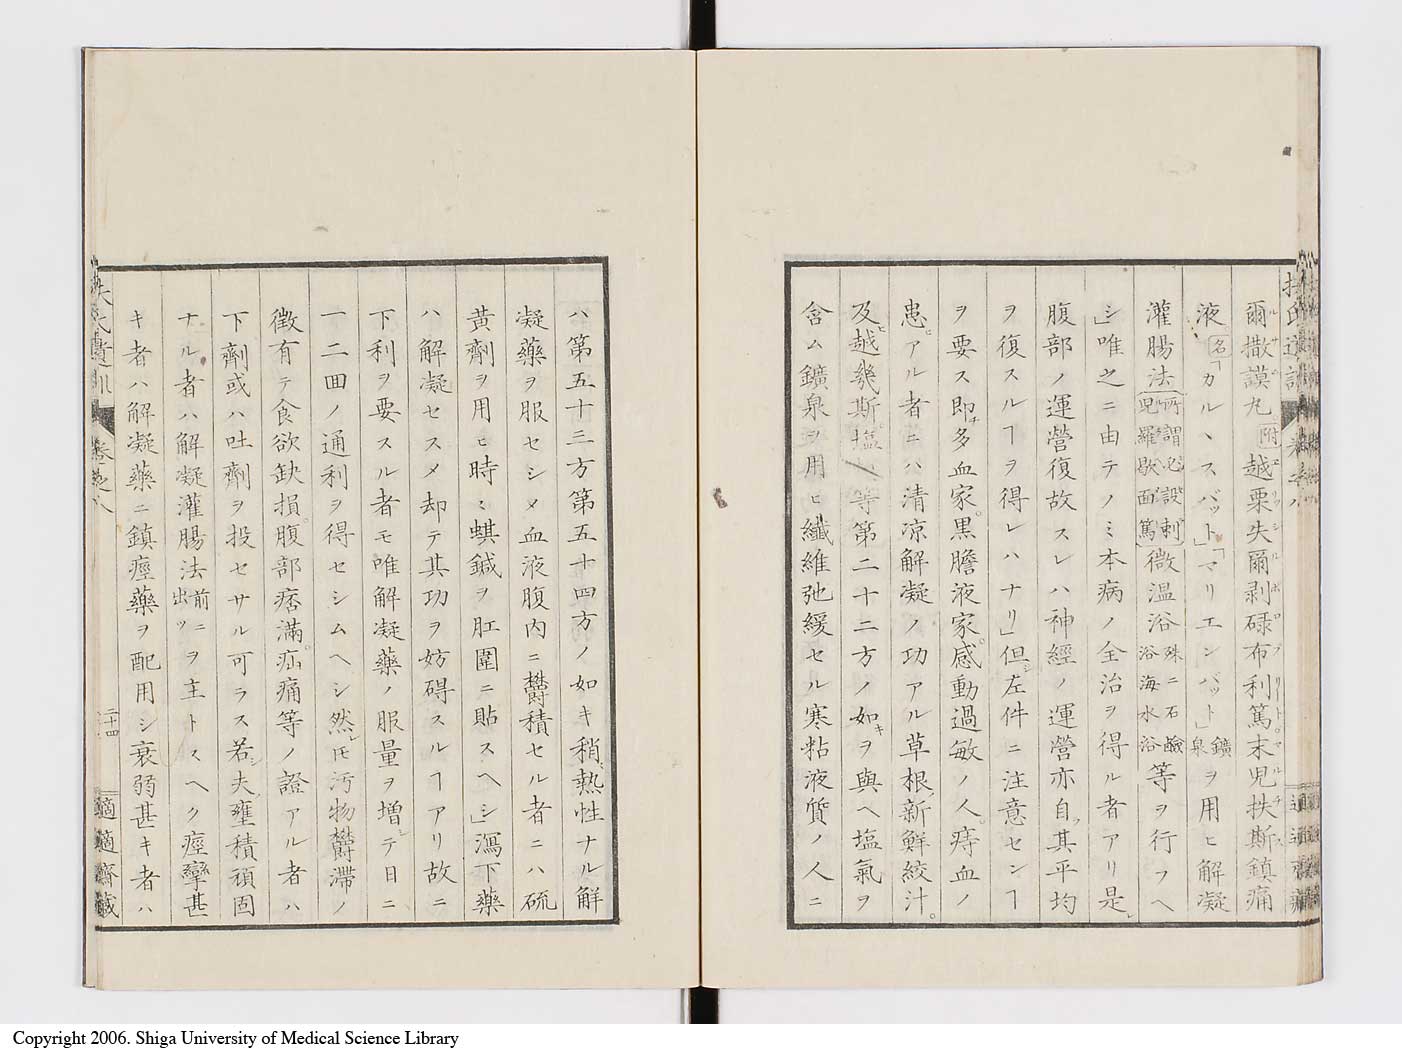 爾撒謨丸附越栗失爾剥碌布利篤末児扶斯鎮痛
液名「カルヽスバット」「マリエンバット」鑛泉ヲ用ヒ解凝
灌腸法所謂必設剌児羅歇面篤微温浴殊ニ石鹸浴海水浴等ヲ行フヘ
シ」唯之ニ由テノミ本病ノ全治ヲ得ル者アリ是レ
腹部ノ運營復故スレハ神經ノ運營亦自ラ其平均
ヲ復スルヿヲ得レハナリ」但シ左件ニ注意センヿ
ヲ要ス即チ多血家。黒膽液家。感動過敏ノ人。痔血ノ
患ヒアル者ニハ清凉解凝ノ功アル草根新鮮絞汁。
及ヒ越幾斯。塩等第二十二方ノ如キヲ與ヘ塩氣ヲ
含ム鑛泉ヲ用ヒ纖維弛緩セル寒粘液質ノ人ニ
ハ第五十三方第五十四方ノ如キ稍熱性ナル解
凝藥ヲ服セシメ血液腹内ニ欝積セル者ニハ硫
黄劑ヲ用ヒ時々蜞鍼ヲ肛圍ニ貼スヘシ」瀉下藥
ハ解凝セスメ却テ其功ヲ妨碍スルヿアリ故ニ
下利ヲ要スル者モ唯解凝藥ノ服量ヲ増シテ日ニ
一二回ノ通利ヲ得セシムヘシ然レ𪜈汚物欝滯ノ
徴有テ食欲缺損。腹部痞滿。疝痛等ノ證アル者ハ
下劑或ハ吐劑ヲ投セサル可ラス若シ夫壅積頑固
ナル者ハ解凝灌腸法前ニ出ツヲ主トスヘク痙攣甚
キ者ハ解凝藥ニ鎮痙藥ヲ配用シ衰弱甚キ者ハ
二十四
適適齋藏
Copyright 2006. Shiga University of Medical Science Library